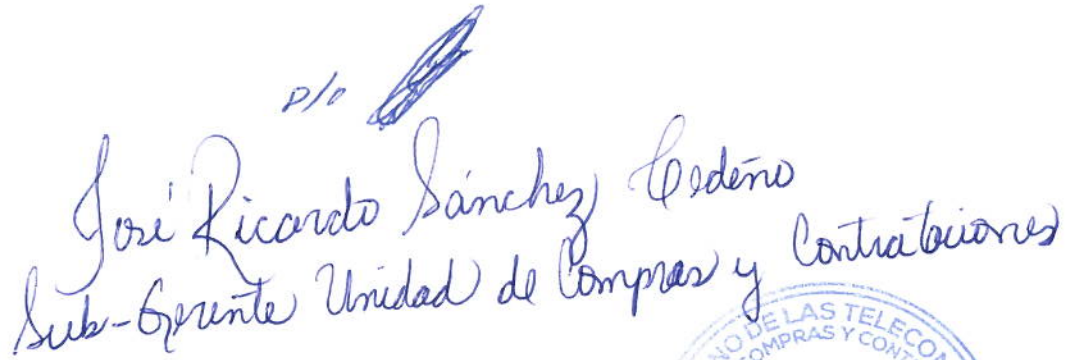 P/o
José Ricardo Sánchez Cedeño
Sub-Gerente Unidad de Compras y Contrataciones
NO DE LAS TELECO
OMPRAS Y CONT